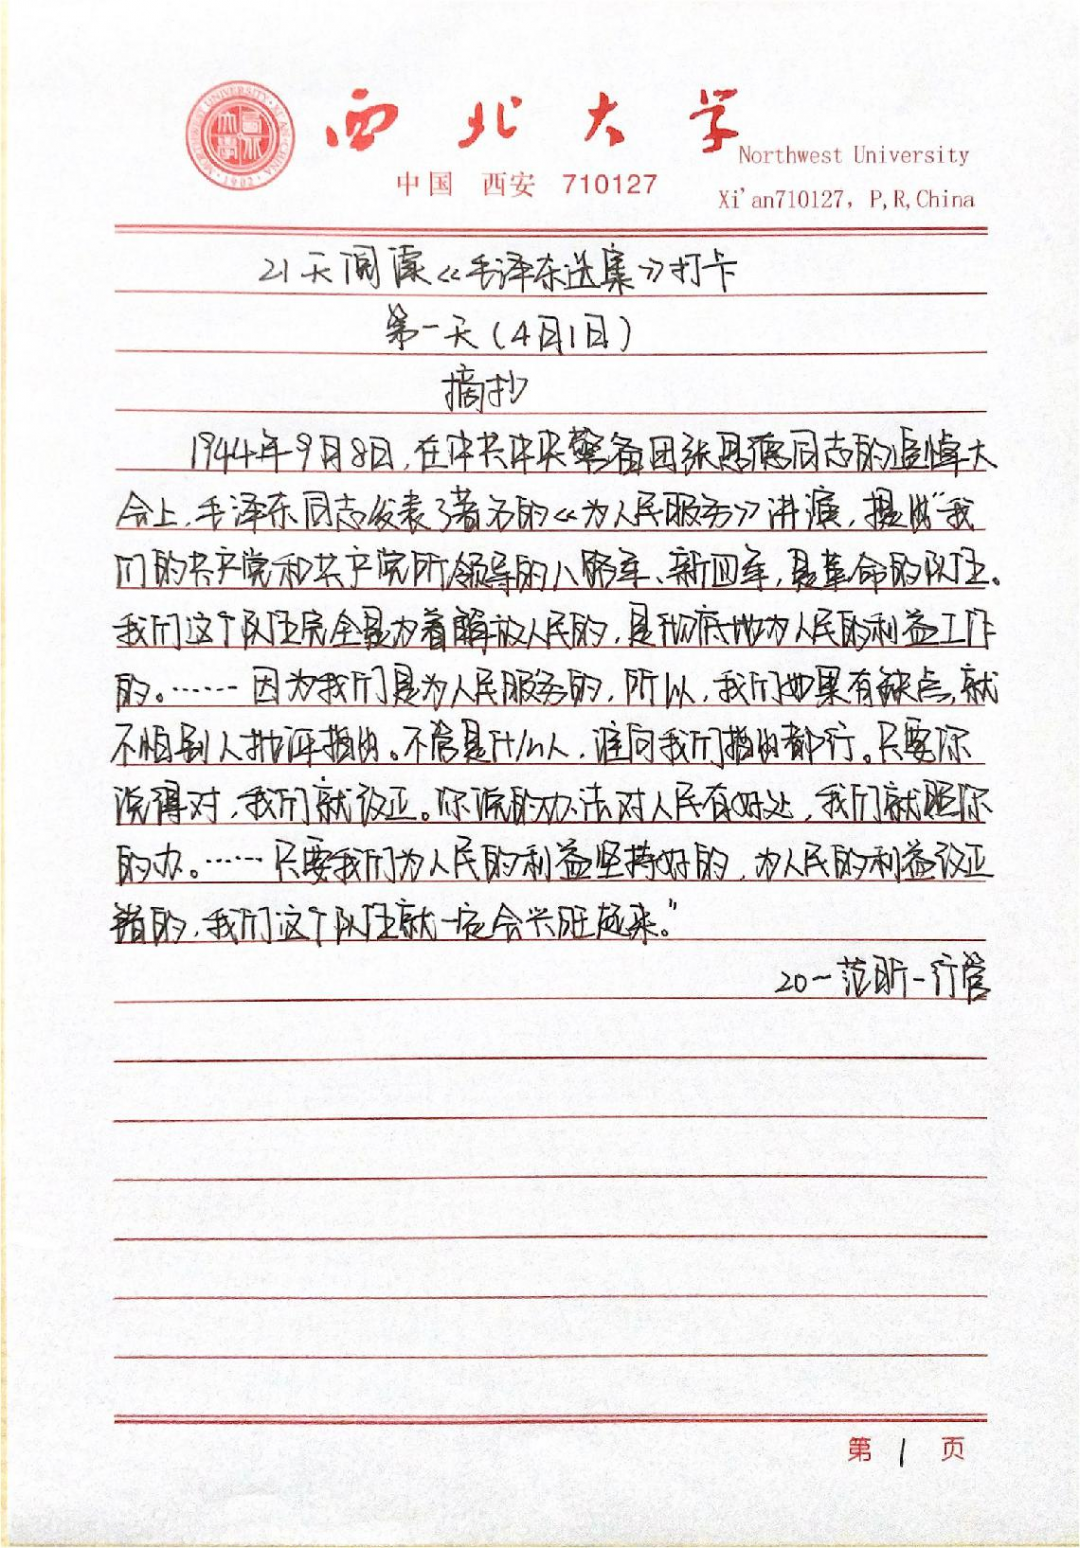 西北大学
Northwest University
中国 西安 710127
Xi'an710127, P,R,China
21天阅读《毛泽东选集》打卡
第一天(4月1日)
摘抄
1944年9月8日,在中共中央警备团张思德同志的追悼大
会上,毛泽东同志发表了著名的《为人民服务》讲演,提出“我
们的共产党和共产党所领导的八路军、新四军,是革命的队伍。
我们这个队伍完全是为着解放人民的,是彻底地为人民的利益工作
的。……因为我们是为人民服务的,所以,我们如果有缺点,就
不怕别人批评指出。不管是什么人,谁向我们指出都行。只要你
说得对,我们就改正。你说的办法对人民有好处,我们就照你
的办。……只要我们为人民的利益坚持好的,为人民的利益改正
错的,我们这个队伍就一定会兴旺起来。”
20一范昕一行管
第1页